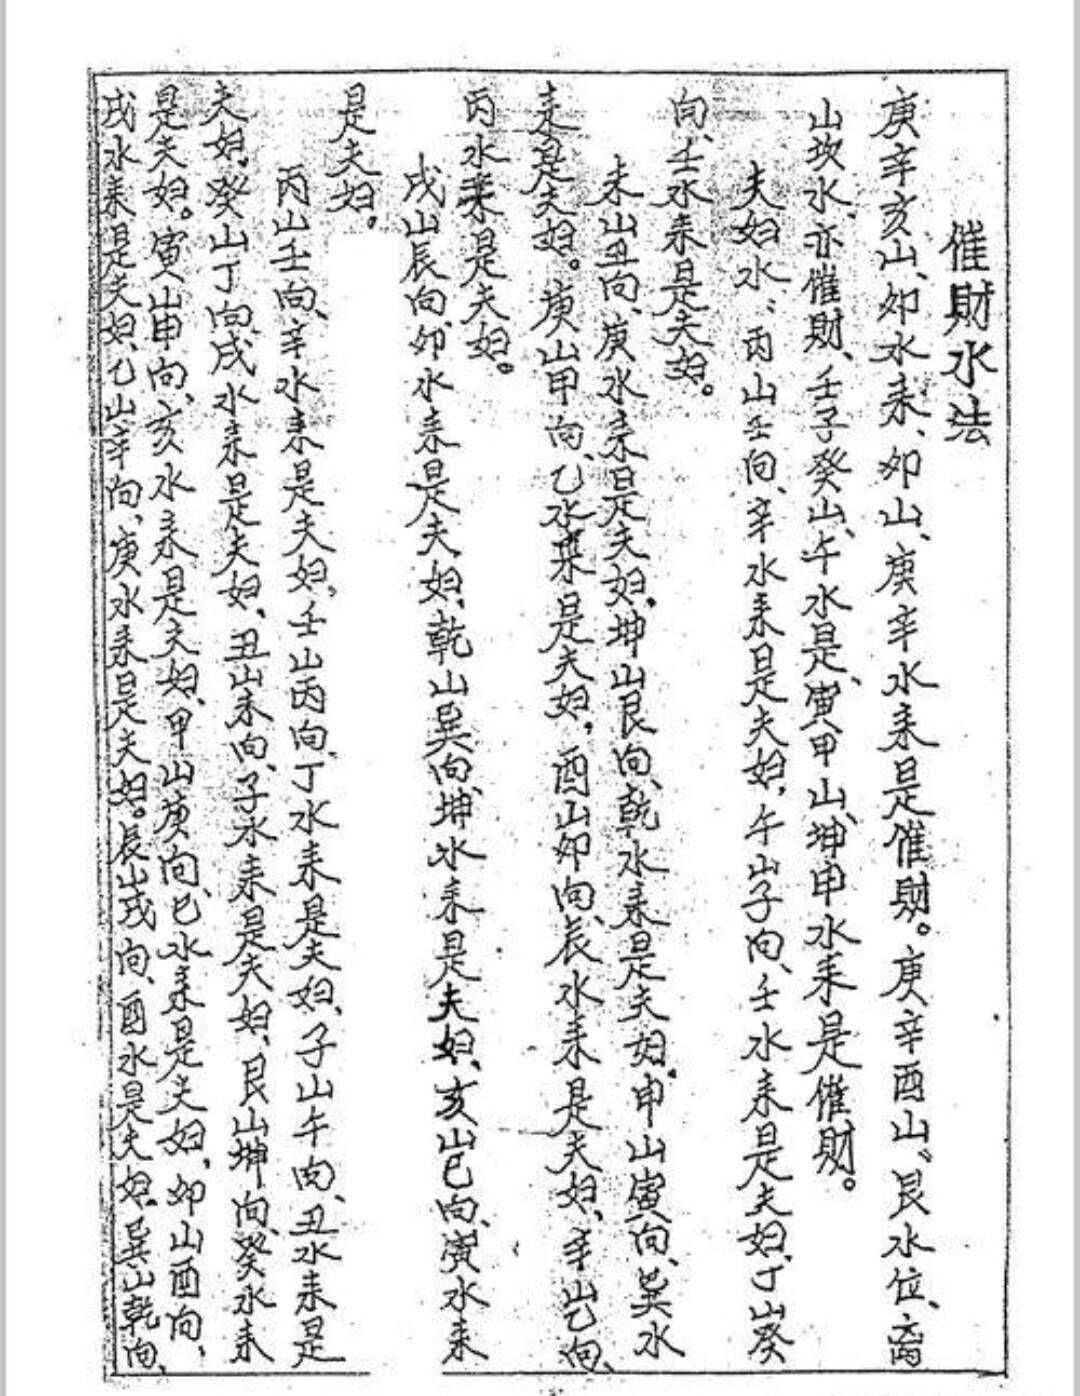 催財水法
庚辛亥山、卯水来、卯山、庚辛水来是催财。庚辛酉山、艮水位、离
山坎水、亦催财、壬子癸山、午水是、寅甲山、坤申水来是催财。
夫妇水：丙山壬向、辛水来是夫妇，午山子向、壬水来是夫妇、丁山癸
向、壬水来是夫妇。
未山丑向、庚水来是夫妇，坤山艮向、乾水来是夫妇，申山寅向、巽水
来是夫妇。庚山甲向、乙水来是夫妇，酉山卯向、辰水来是夫妇，辛山乙向、
丙水来是夫妇。
戌山辰向、卯水来是夫妇，乾山巽向、坤水来是夫妇、亥山巳向、寅水来
是夫妇。
丙山壬向、辛水来是夫妇，壬山丙向、丁水来是夫妇、子山午向、丑水来是
夫妇，癸山丁向、戌水来是夫妇，丑山未向、子水来是夫妇、艮山坤向、癸水来
是夫妇。寅山申向、亥水来是夫妇、甲山庚向、巳水来是夫妇，卯山酉向、
戌水来是夫妇，乙山辛向、庚水来是夫妇。辰山戌向、酉水是夫妇，巽山乾向、